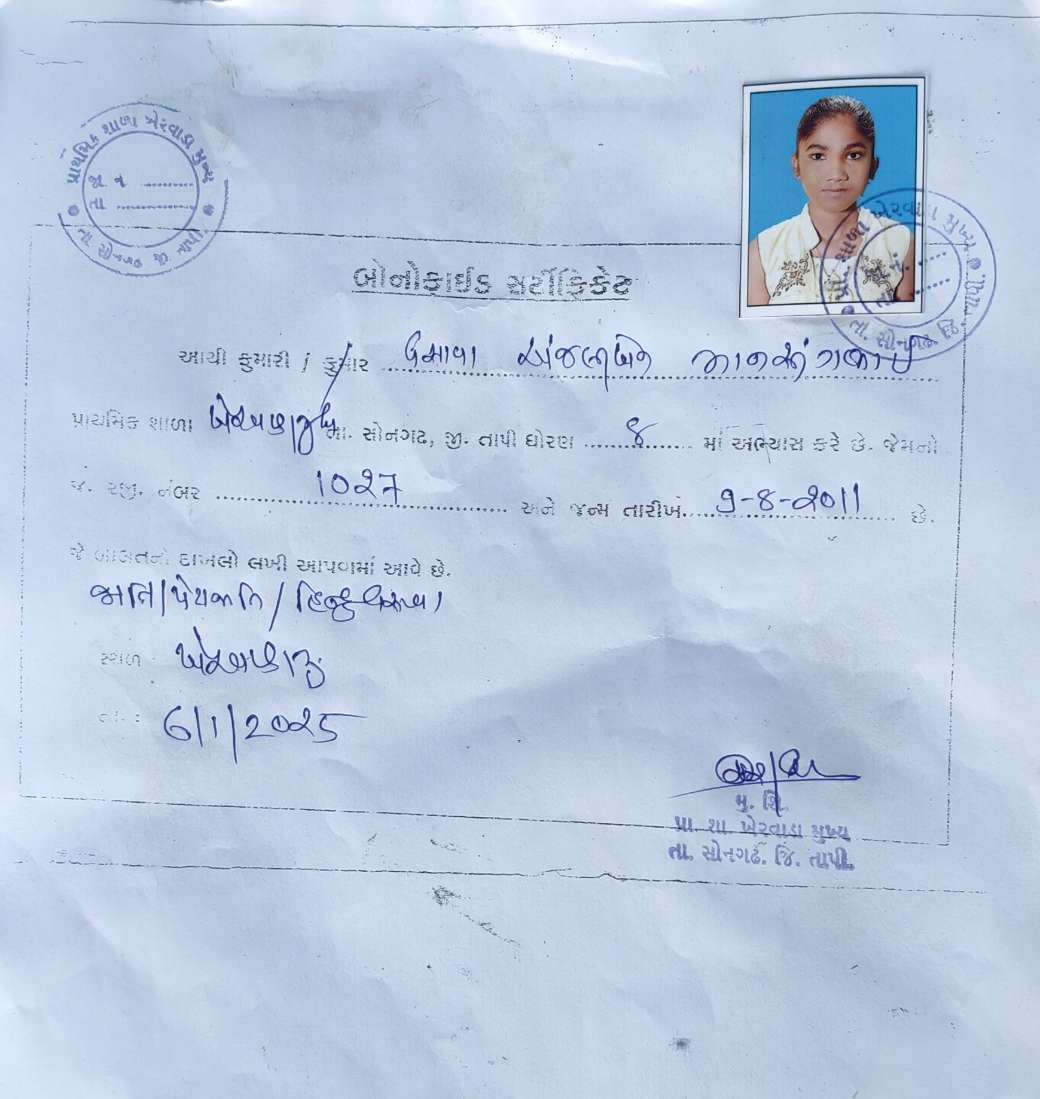 પ્રાથમિક શાળા ખેરવાડા મુખ્ય
જા ન ...........
તા ...............
તા. સોનગઢ જી. તાપી
ખેરવાડા મુખ્ય
તા. સોનગઢ જિ. તાપી.
બોનોફાઈડ સર્ટીફિકેટ
આથી કુમારી / કુમાર ગામીત અંજલીબેન
પ્રાથમિક શાળા ખેરવાડા મુખ્ય તા. સોનગઢ, જી. તાપી ધોરણ ........ 8 ....... માં અભ્યાસ કરે છે. જેમનો
જ. રજી. નંબર ............ 1027 ............ અને જન્મ તારીખ..... 9-8-2011 ..... છે.
જે બાબતનો દાખલો લખી આપવામાં આવે છે.
જાતિ / પેટાજાતિ / હિન્દુ વસાવા
સ્થળ : ખેરવાડા મુ
તા. : 6/1/2025
મુ. શિ.
પ્રા. શા. ખેરવાડા મુખ્ય
તા. સોનગઢ. જિ. તાપી.